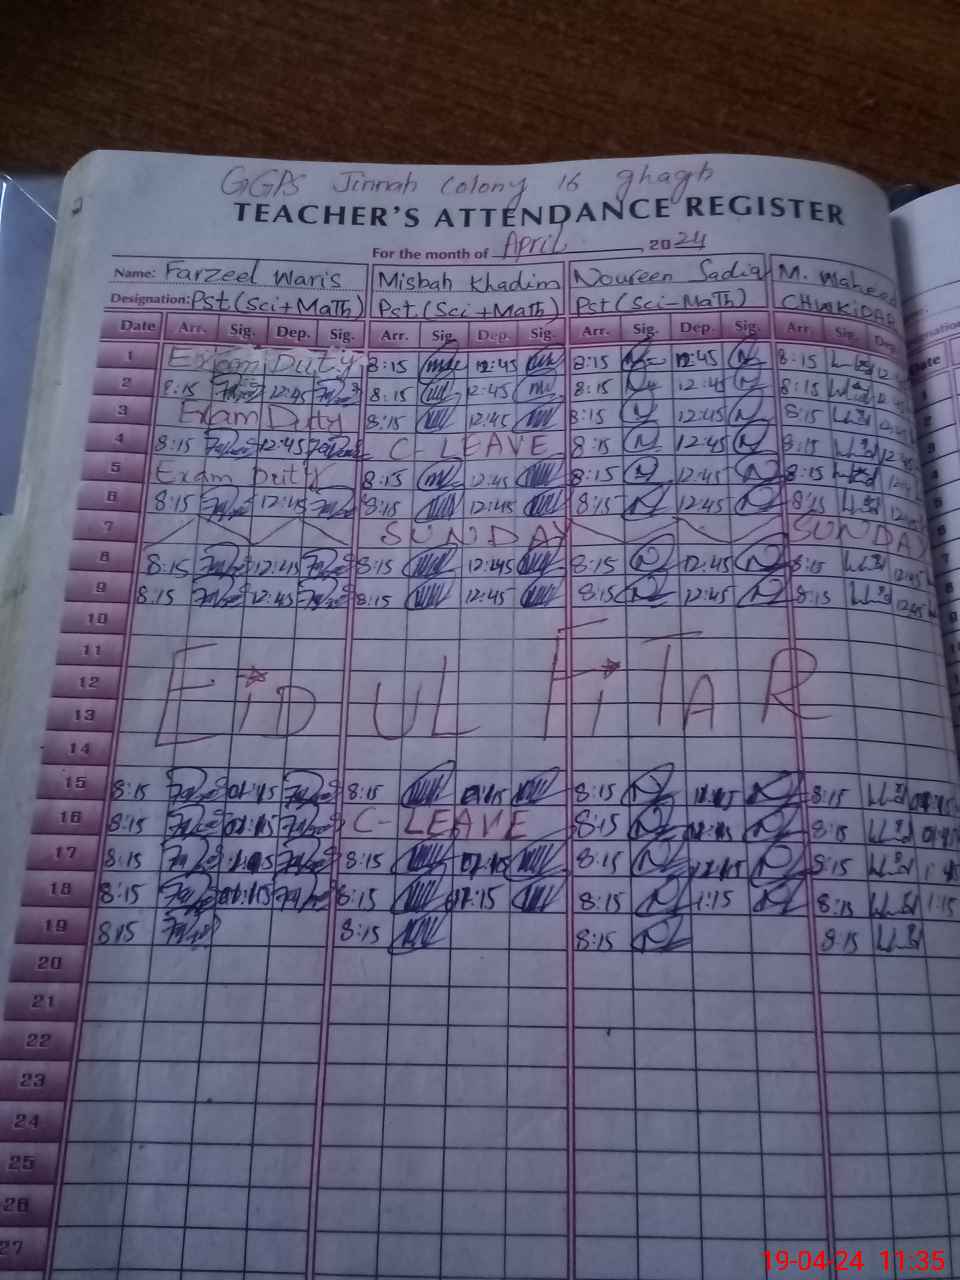 GGPS Jinnah Colony 16 ghagh
TEACHER'S ATTENDANCE REGISTER
For the month of April 2024
Name: Farzeel Waris Misbah Khadim Noureen Sadiq M. Waheed
Designation: Pst (Sci+MaTh) Pst (Sci+Math) Pst (Sci-MaTh) CHWKIDAR
Date Arr. Sig. Dep. Sig. Arr. Sig. Dep. Sig. Arr. Sig. Dep. Sig. Arr. Sig. Dep.
1 Exam Duty 8:15 12:45 8:15 12:45 8:15
2 8:15 12:45 8:15 12:45 8:15 12:45 8:15
3 Exam Duty 8:15 12:45 8:15 12:45 8:15
4 8:15 12:45 C-LEAVE 8:15 12:45 8:15 12:45
5 Exam Dutty 8:15 12:45 8:15 12:45 8:15
6 8:15 12:45 8:15 12:45 8:15 12:45 8:15
7 SUNDAY SUNDAY
8 8:15 12:45 8:15 12:45 8:15 12:45 8:15 12:45
9 8:15 12:45 8:15 12:45 8:15 12:45 8:15 12:45
10
11
12 EiD UL FiTAR
13
14
15 8:15 8:15 8:15 8:15
16 8:15 C-LEAVE 8:15 8:15
17 8:15 8:15 8:15 8:15
18 8:15 8:15 8:15 1:15 8:15 1:15
19 8:15 8:15 8:15 8:15
20
21
22
23
24
25
26
27
19-04-24 11:35